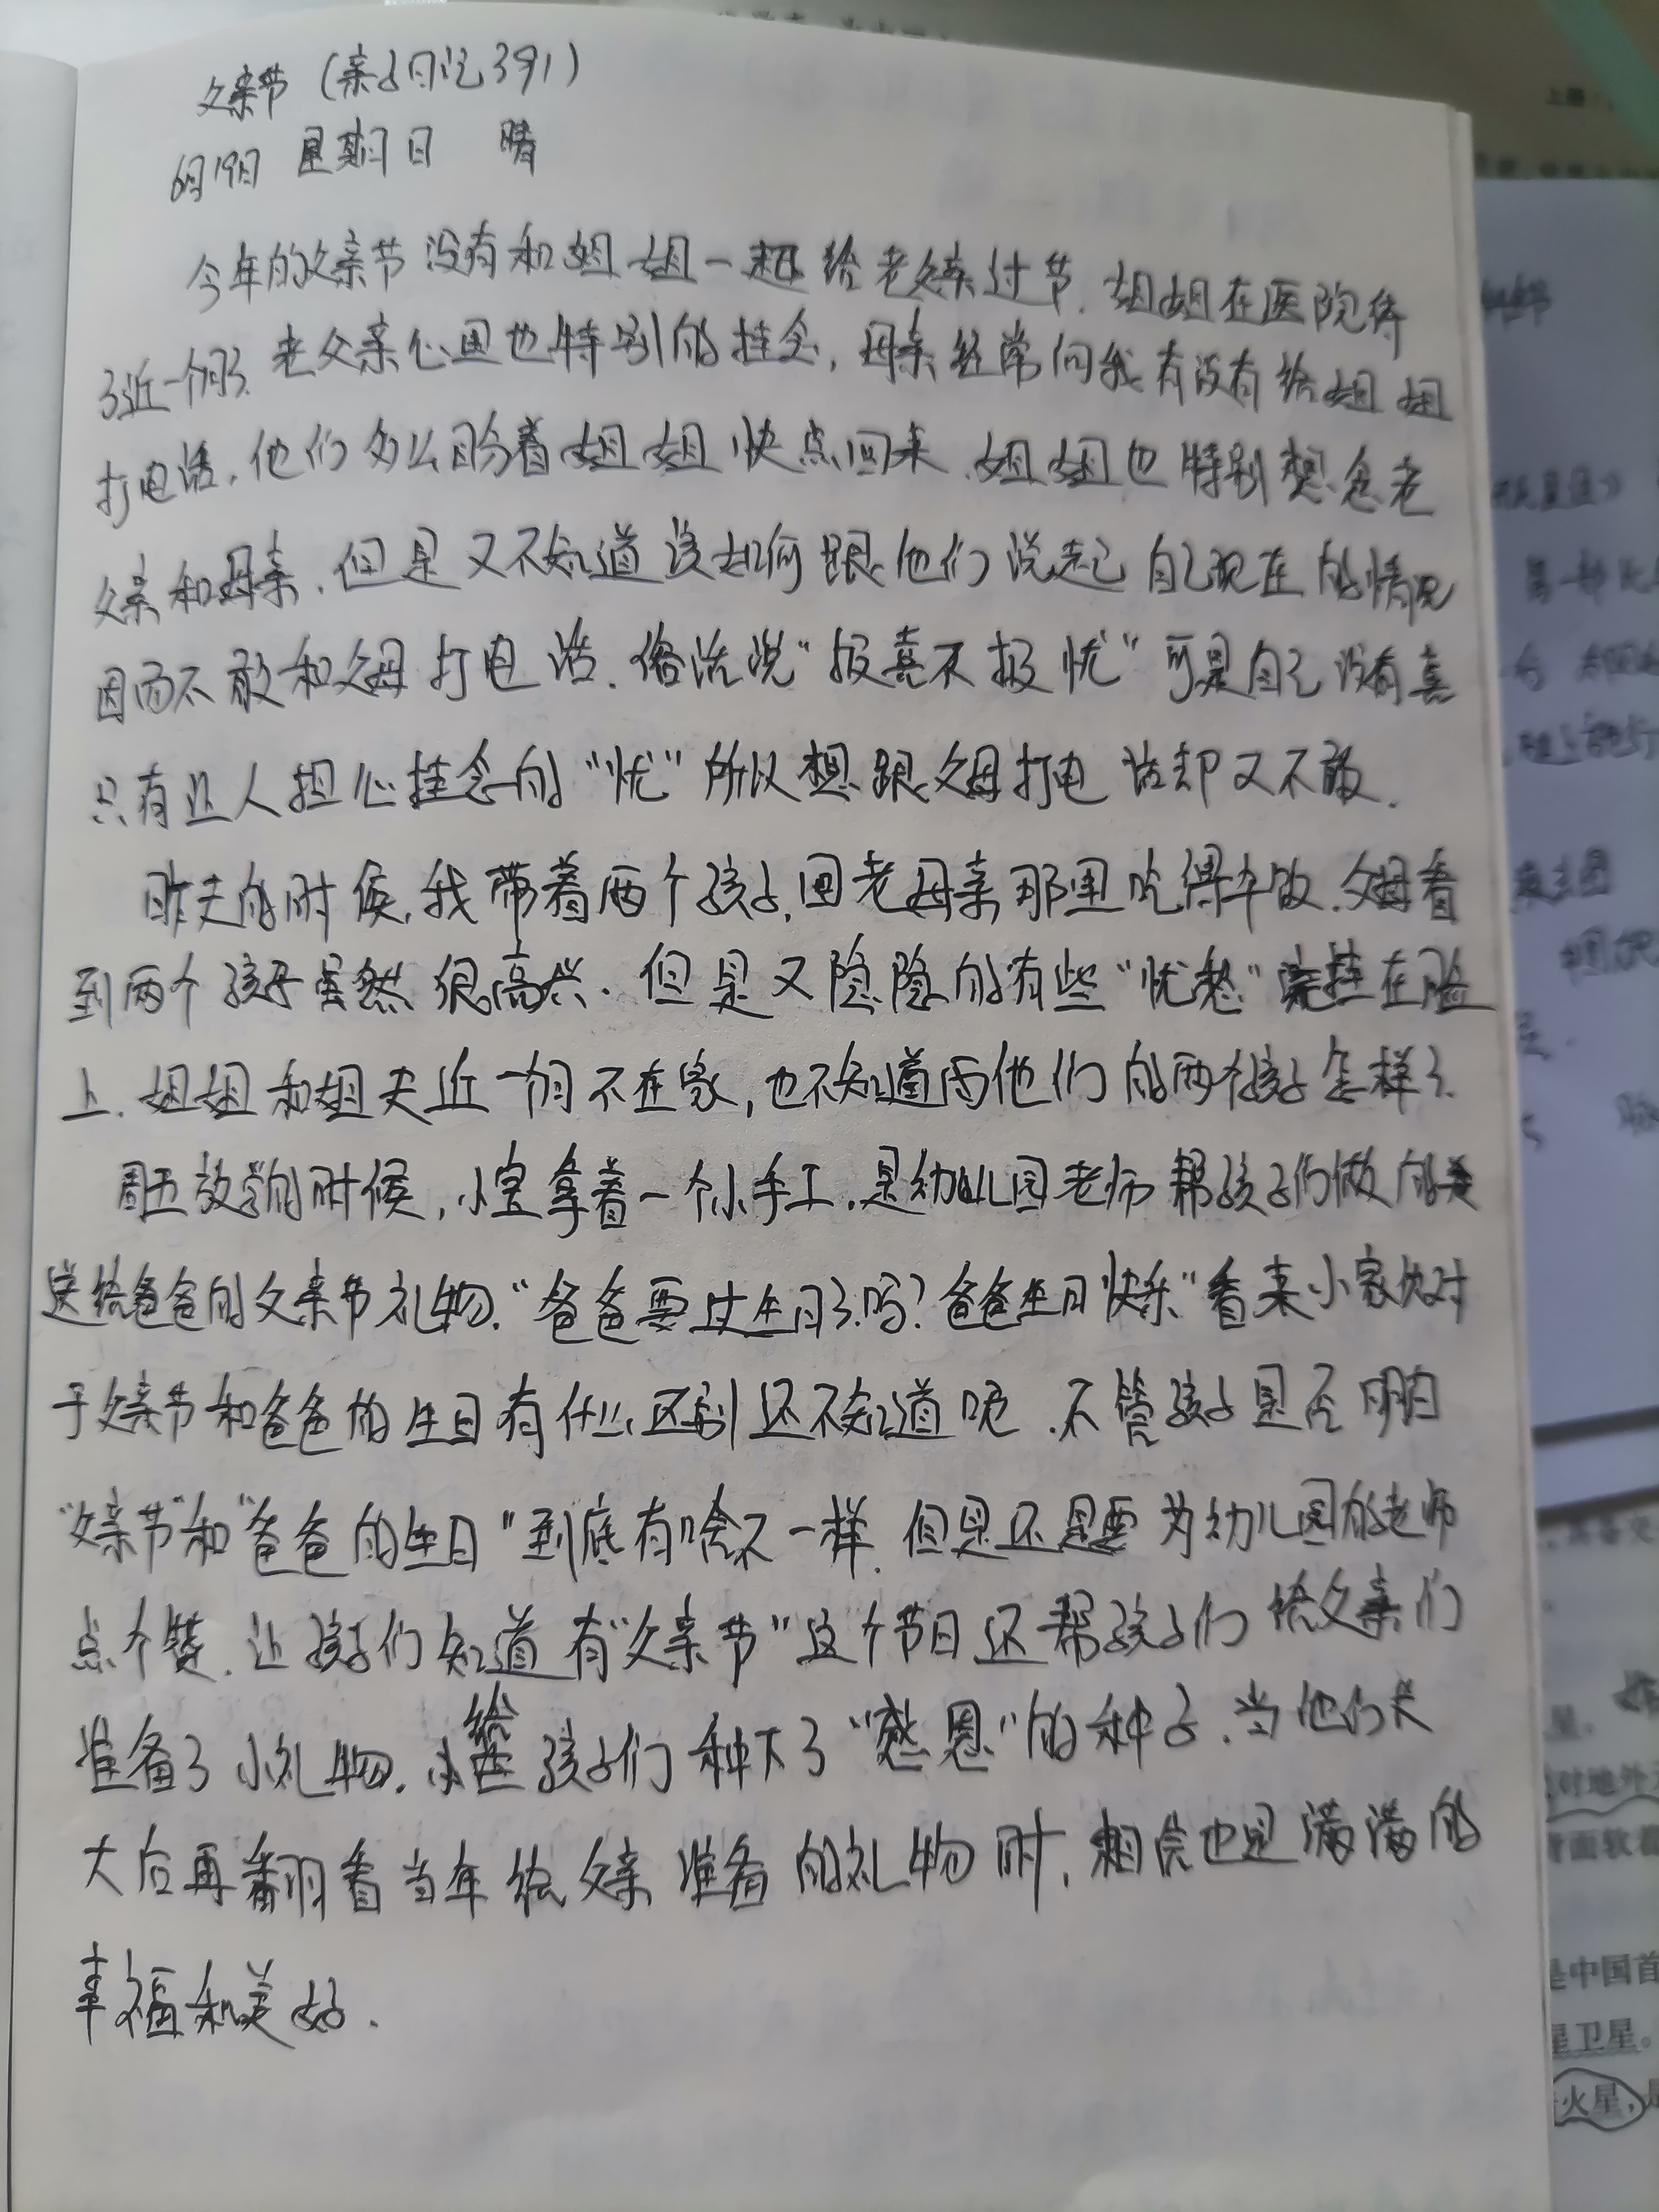 父亲节（亲子日记391）
6月19日 星期日 晴
今年的父亲节没有和姐姐一起给老父亲过节.姐姐在医院待
了近一个月了.老父亲心里也特别的挂念,母亲经常问我有没有给姐姐
打电话.他们多么盼着姐姐快点回来.姐姐也特别想念老
父亲和母亲.但是又不知道该如何跟他们说起自己现在的情况
因而不敢和父母打电话.俗话说"报喜不报忧"可是自己没有喜
只有让人担心挂念的"忧"所以想跟父母打电话却又不敢.
昨天的时候,我带着两个孩子,回老母亲那里吃得午饭.父母看
到两个孩子虽然很高兴.但是又隐隐的有些"忧愁"挂在脸
上.姐姐和姐夫近一个月不在家,也不知道他们的两个孩子怎样了.
周五放学的时候,小宝拿着一个小手工.是幼儿园老师帮孩子们做的
送给爸爸的父亲节礼物."爸爸要过生日了吗?爸爸生日快乐"看来小家伙对
于父亲节和爸爸的生日有什么区别还不知道呢.不管孩子是否明白
"父亲节"和"爸爸的生日"到底有啥不一样.但是还是要为幼儿园的老师
点个赞.让孩子们知道有"父亲节"这个节日还帮孩子们给父亲们
准备了小礼物.给孩子们种下了"感恩"的种子.当他们长
大后再翻看当年给父亲准备的礼物时,相信也是满满的
幸福和美好.
中国首
星卫星。
火星,